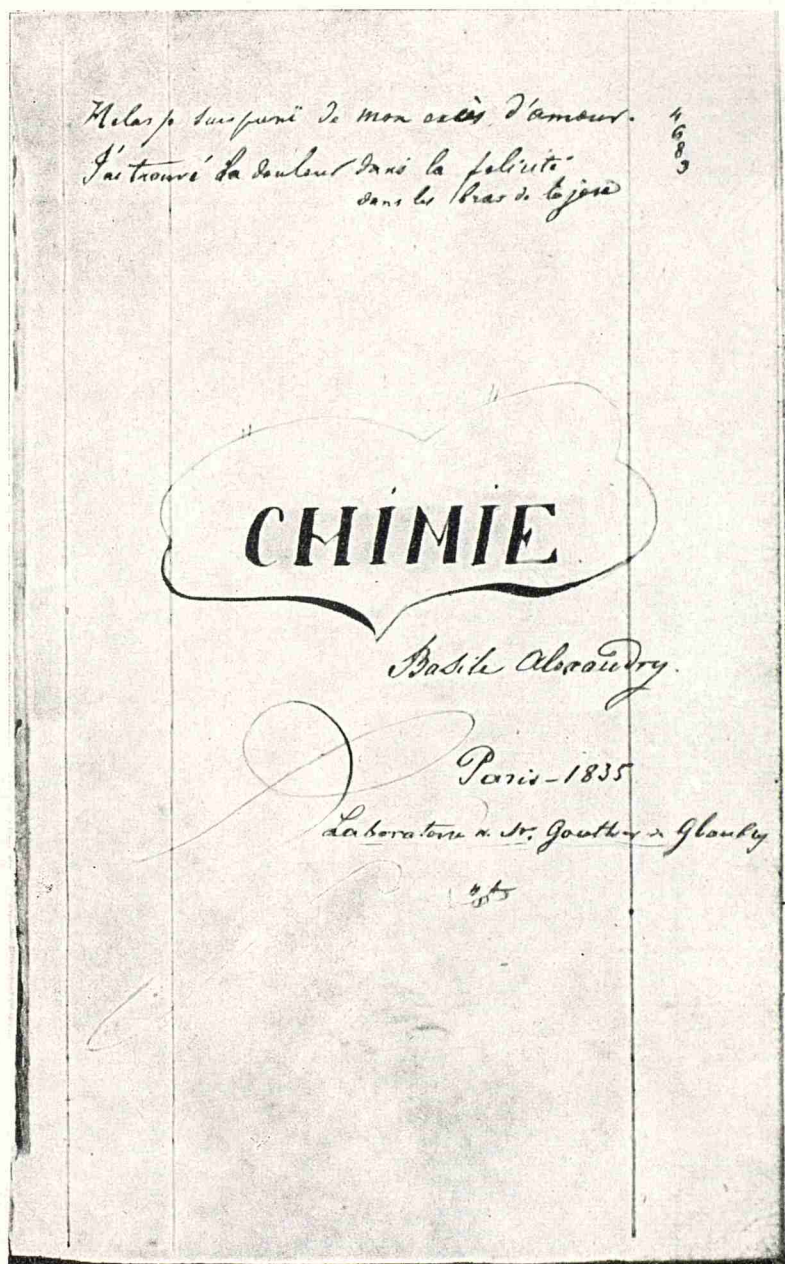 Helas je suis puni de mon excès d'amour. 4
6
8
J'ai trouvé la douleur dans la felicité 9
dans les bras de la joie
CHIMIE
Basile Alexandry.
Paris - 1835
Laboratoire de Mr. Gaulthier de Glaubry